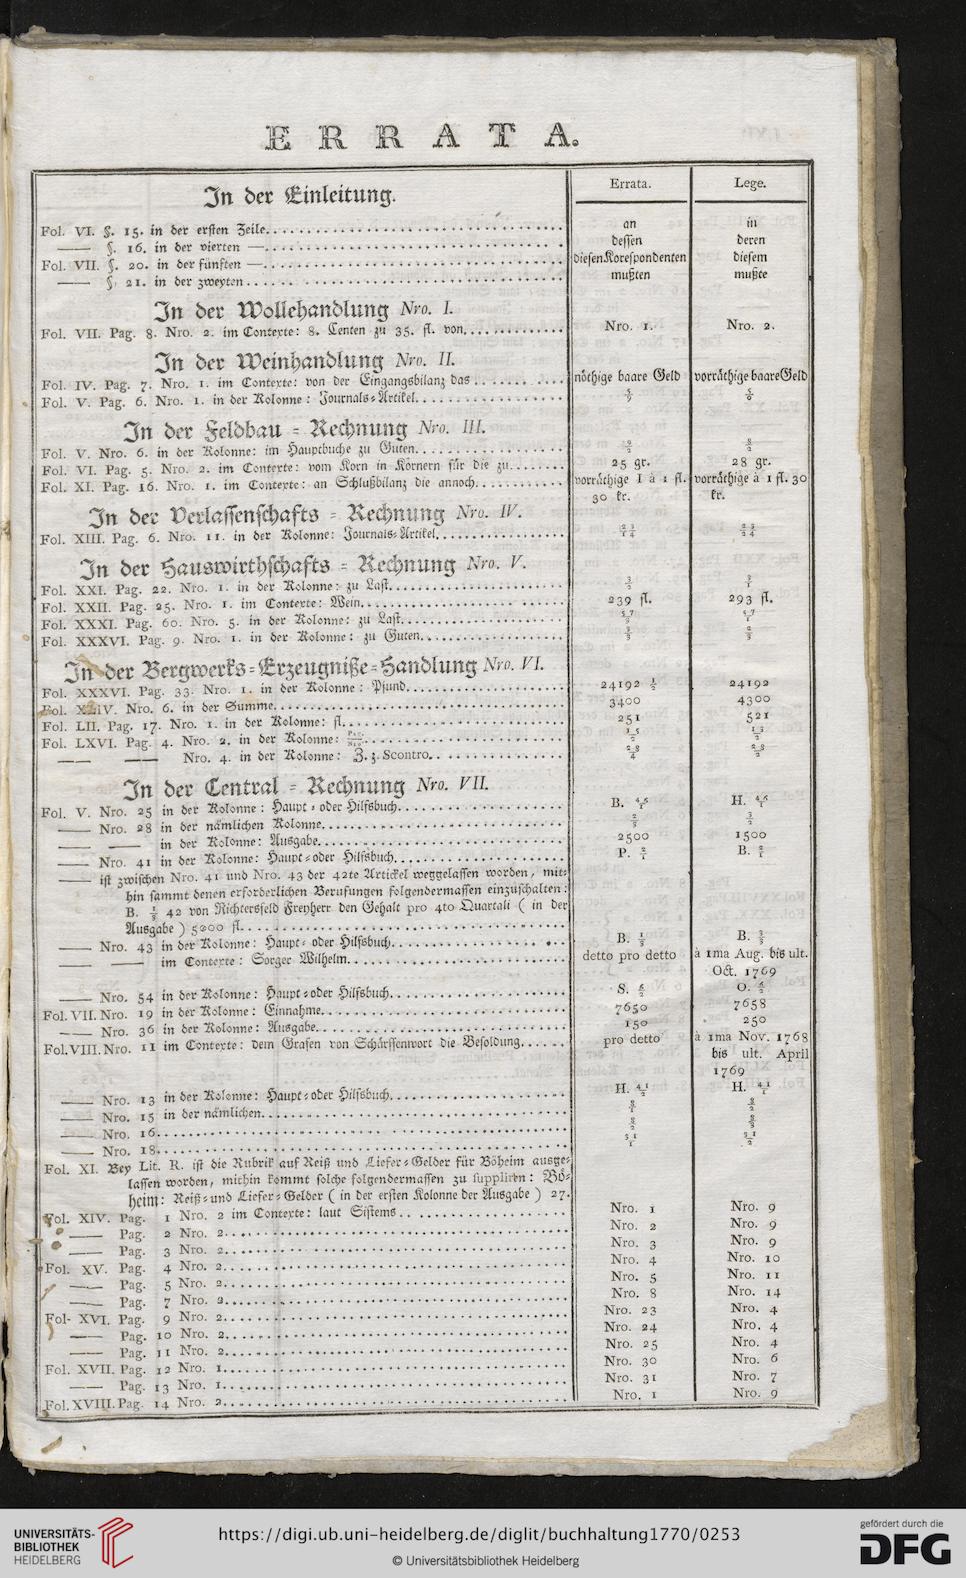 ERRATA.
In der Einleitung. Errata. Lege.
Fol. VI. §. 15. in der ersten Zeile. an in
—— §. 16. in der vierten — dessen deren
Fol. VII. §. 20. in der fünften — diesen Korespondenten diesem
—— §. 21. in der zweyten mußten mußte
In der Wollehandlung Nro. I.
Fol. VII. Pag. 8. Nro. 2. im Contexte: 8. Centen zu 35. fl. von Nro. 1. Nro. 2.
In der Weinhandlung Nro. II.
Fol. IV. Pag. 7. Nro. 1. im Contexte: von der Eingangsbilanz das nöthige baare Geld vorräthige baare Geld
Fol. V. Pag. 6. Nro. 1. in der Kolonne: Journals-Artikel.
In der Feldbau - Rechnung Nro. III.
Fol. V. Nro. 6. in der Kolonne: im Hauptbuche zu Guten.
Fol. VI. Pag. 5. Nro. 2. im Contexte: vom Korn in Körnern für die zu 25 gr. 28 gr.
Fol. XI. Pag. 16. Nro. 1. im Contexte: an Schlußbilanz die annoch. vorräthige 1 à 1 fl. vorräthige à 1 fl. 30
30 kr. kr.
In der Verlassenschafts - Rechnung Nro. IV.
Fol. XIII. Pag. 6. Nro. 11. in der Kolonne: Journals-Artikel.
In der Hauswirthschafts - Rechnung Nro. V.
Fol. XXI. Pag. 22. Nro. 1. in der Kolonne: zu Last. 3/2 3/1
Fol. XXII. Pag. 25. Nro. 1. im Contexte: Wein. 239 fl. 293 fl.
Fol. XXXI. Pag. 60. Nro. 5. in der Kolonne: zu Last.
Fol. XXXVI. Pag. 9. Nro. 1. in der Kolonne: zu Guten.
In der Bergwerks-Erzeugniße-Handlung Nro. VI.
Fol. XXXVI. Pag. 33. Nro. 1. in der Kolonne: Pfund. 24192 1/2 24192
Fol. XLIV. Nro. 6. in der Summe. 3400 4300
Fol. LII. Pag. 17. Nro. 1. in der Kolonne: fl. 251 521
Fol. LXVI. Pag. 4. Nro. 2. in der Kolonne: Pag./Nro. 15/2 13/2
—— —— Nro. 4. in der Kolonne: Z. z. Scontro. 28/4 28/2
In der Central - Rechnung Nro. VII.
Fol. V. Nro. 25 in der Kolonne: Haupt- oder Hilfsbuch. B. 45/1 H. 45/1
—— Nro. 28 in der nämlichen Kolonne.
—— —— in der Kolonne: Ausgabe. 2500 1500
—— Nro. 41 in der Kolonne: Haupt- oder Hilfsbuch. P. 2/1 B. 2/1
—— ist zwischen Nro. 41 und Nro. 43 der 42te Artickel weggelassen worden, mit-
hin sammt denen erforderlichen Berufungen folgendermassen einzuschalten:
B. 1/3 42 von Richtersfeld Freyherr den Gehalt pro 4to Quartali ( in der
Ausgabe ) 5000 fl.
—— Nro. 43 in der Kolonne: Haupt- oder Hilfsbuch. B. 1/3 B. 3/3
—— —— im Contexte: Sorger Wilhelm. detto pro detto à 1ma Aug. bis ult.
Oct. 1769
—— Nro. 54 in der Kolonne: Haupt- oder Hilfsbuch. S. 6/2 O. 6/2
Fol. VII. Nro. 19 in der Kolonne: Einnahme. 7650 7658
—— Nro. 36 in der Kolonne: Ausgabe. 150 250
Fol. VIII. Nro. 11 im Contexte: dem Grafen von Schärffenwort die Besoldung. pro detto à 1ma Nov. 1768
bis ult. April
1769
—— Nro. 13 in der Kolonne: Haupt- oder Hilfsbuch. H. 41/2 H. 41/1
—— Nro. 15 in der nämlichen.
—— Nro. 16.
—— Nro. 18. 51/1 51/2
Fol. XI. Bey Lit. R. ist die Rubrik auf Reiß und Liefer-Gelder für Böheim ausge-
lassen worden, mithin kommt solche folgendermassen zu suppliren: Bö-
heim: Reiß- und Liefer-Gelder ( in der ersten Kolonne der Ausgabe ) 27.
Fol. XIV. Pag. 1 Nro. 2 im Contexte: laut Sistems Nro. 1 Nro. 9
—— Pag. 2 Nro. 2. Nro. 2 Nro. 9
—— Pag. 3 Nro. 2. Nro. 3 Nro. 9
Fol. XV. Pag. 4 Nro. 2. Nro. 4 Nro. 10
—— Pag. 5 Nro. 2. Nro. 5 Nro. 11
—— Pag. 7 Nro. 2. Nro. 8 Nro. 14
Fol. XVI. Pag. 9 Nro. 2. Nro. 23 Nro. 4
—— Pag. 10 Nro. 2. Nro. 24 Nro. 4
—— Pag. 11 Nro. 2. Nro. 25 Nro. 4
Fol. XVII. Pag. 12 Nro. 1. Nro. 30 Nro. 6
—— Pag. 13 Nro. 1. Nro. 31 Nro. 7
Fol. XVIII. Pag. 14 Nro. 2. Nro. 1 Nro. 9
UNIVERSITÄTS-
BIBLIOTHEK
HEIDELBERG
https://digi.ub.uni-heidelberg.de/diglit/buchhaltung1770/0253
© Universitätsbibliothek Heidelberg
gefördert durch die
DFG